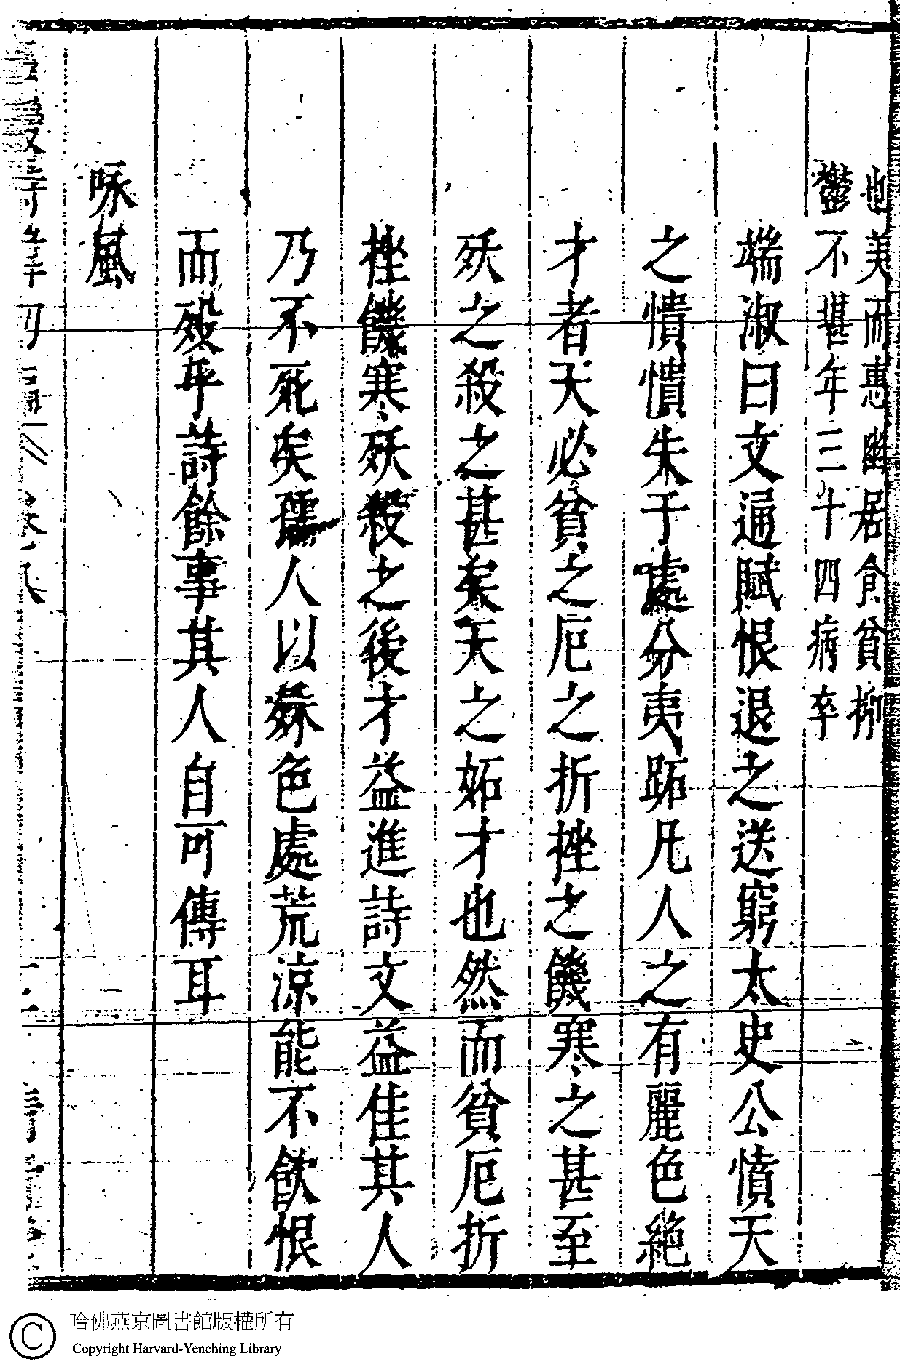 也美而惠幽居食貧抑
鬱不堪年三十四病卒
端淑曰文通賦恨退之送窮太史公憤天
之憒憒朱于處分夷跖凡人之有麗色絕
才者天必貧之厄之折挫之饑寒之甚至
殀之殺之甚矣天之妬才也然而貧厄折
挫饑寒殀殺之後才益進詩文益佳其人
乃不死矣孺人以姝色處荒涼能不飲恨
而歿乎詩餘事其人自可傳耳
咏風
哈佛燕京圖書館版權所有
Copyright Harvard-Yenching Library